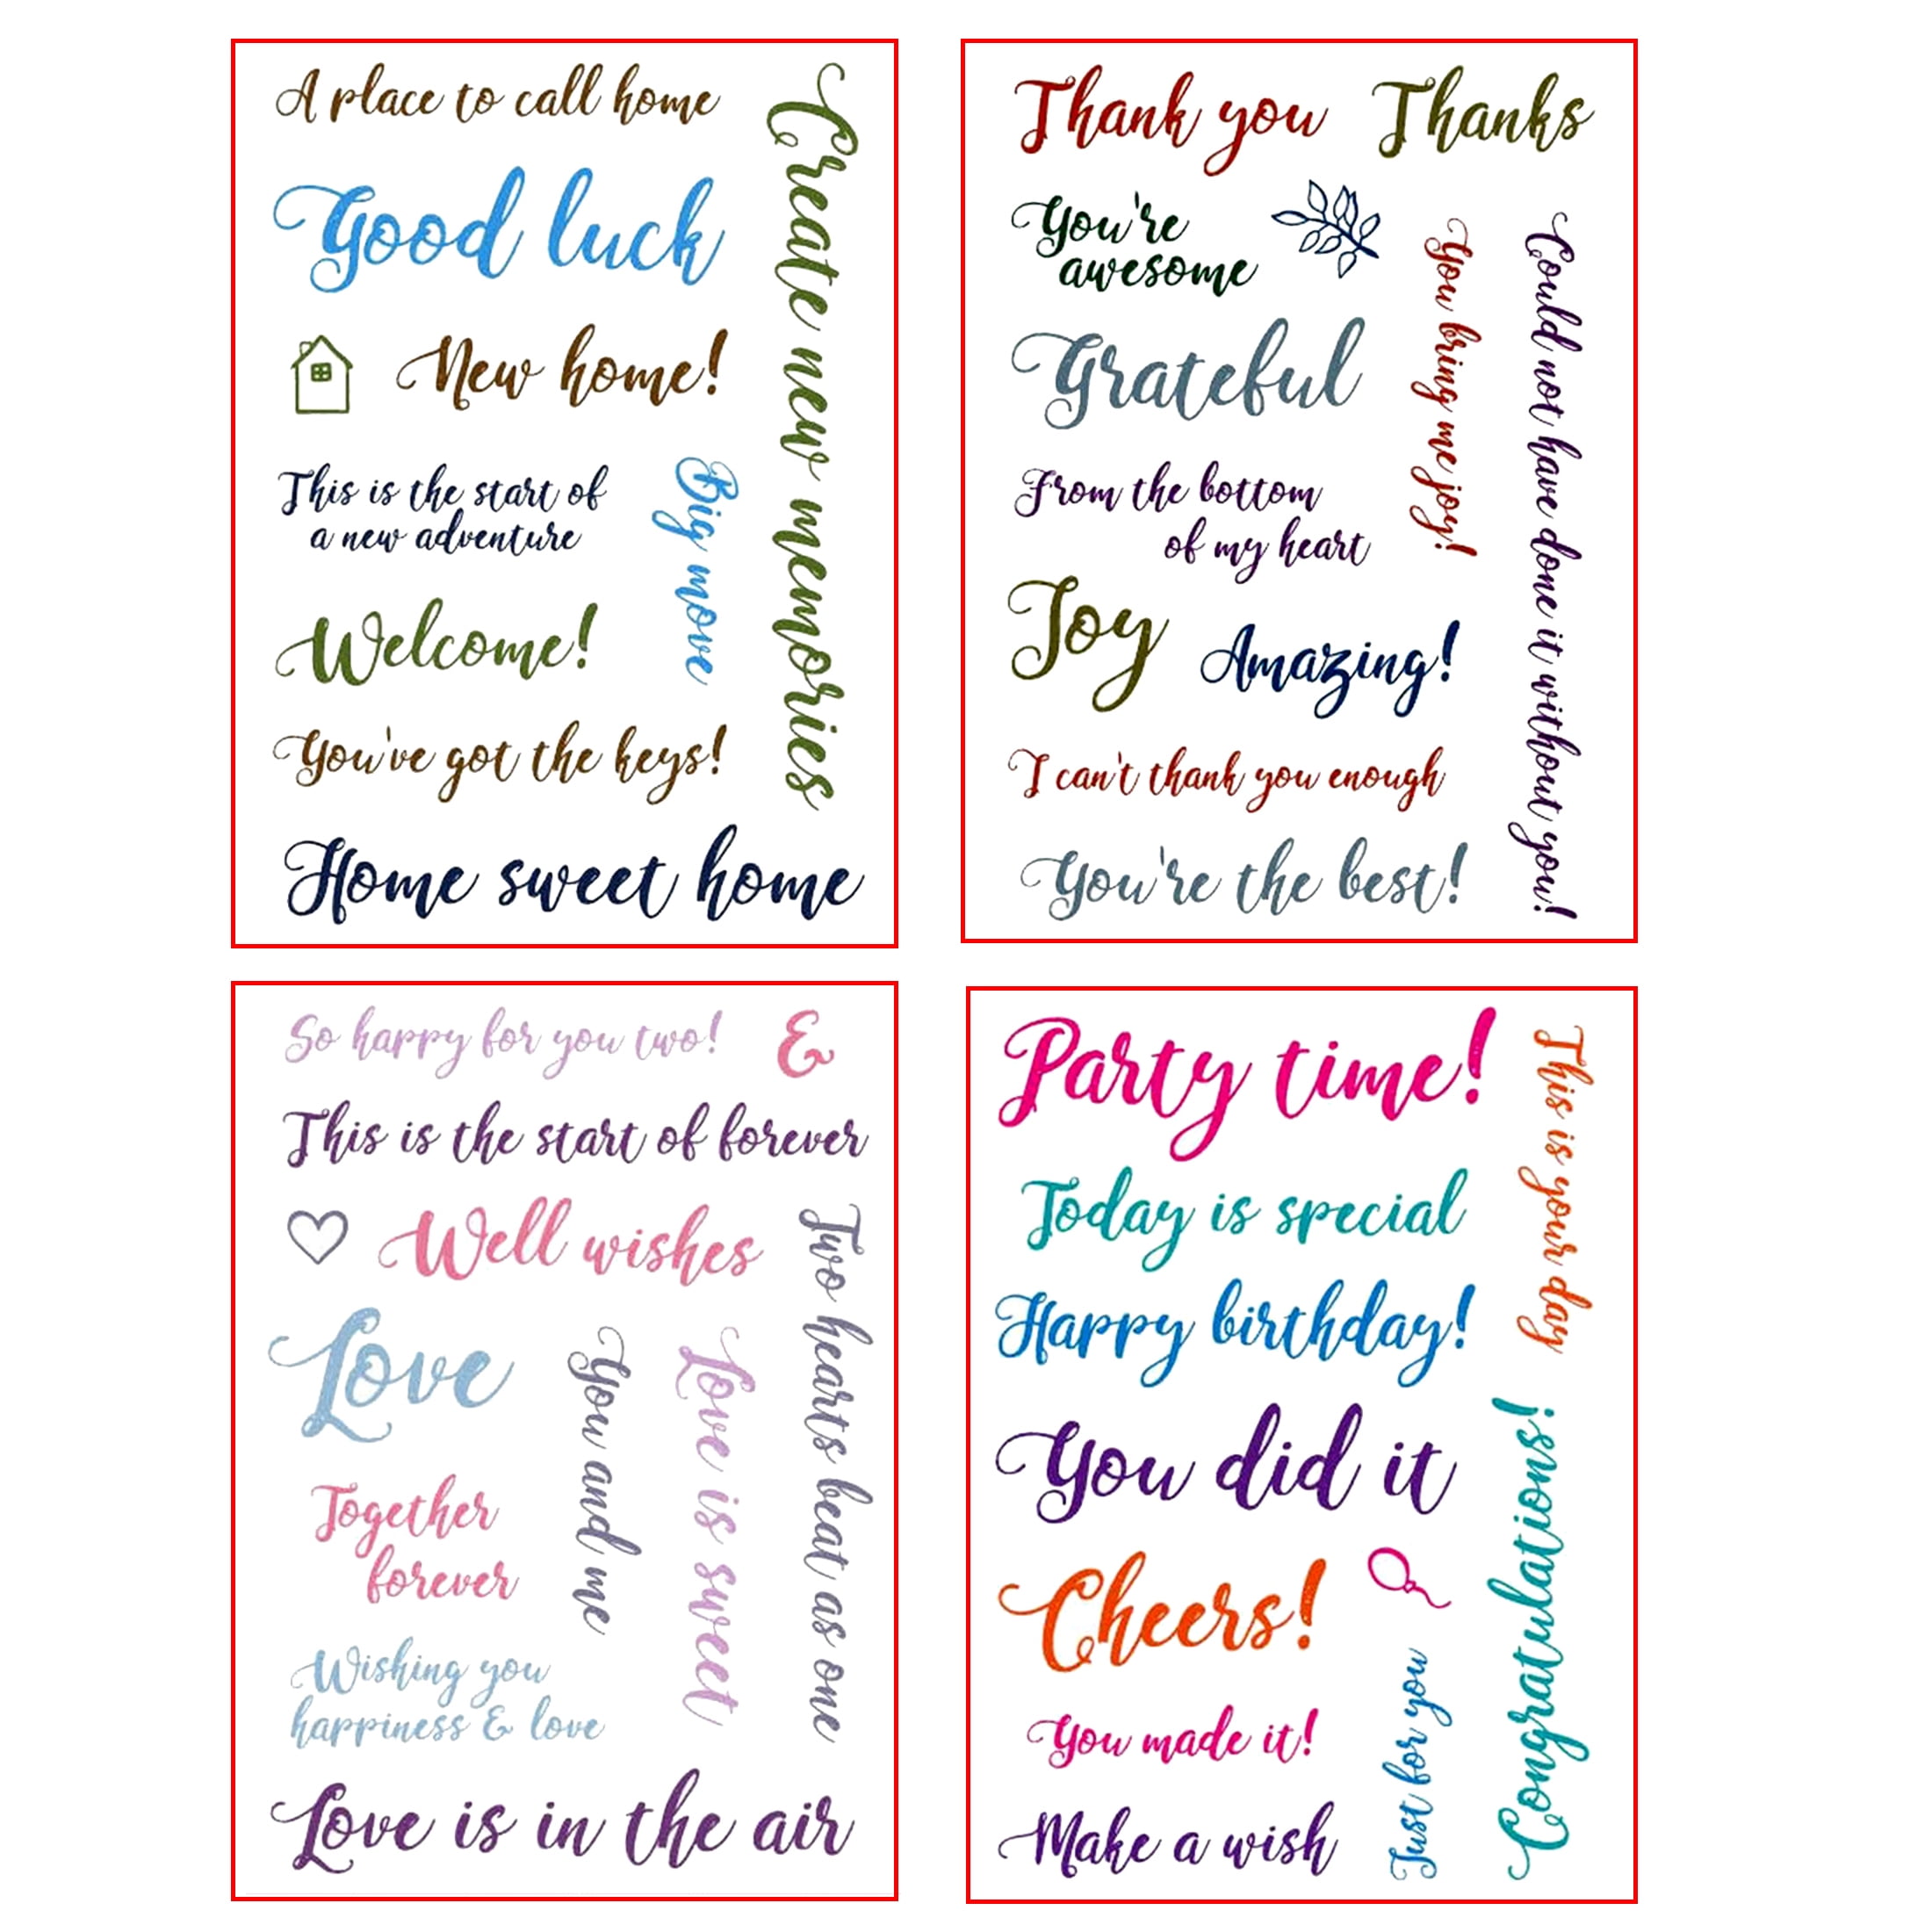 A place to call home
Good luck
New home!
This is the start of
a new adventure
Big move
Welcome!
You've got the keys!
Home sweet home
Create new memories
Thank you
Thanks
You're
awesome
Grateful
From the bottom
of my heart
Joy
Amazing!
I can't thank you enough
You're the best!
You bring me joy!
Could not have done it without you!
So happy for you two!
&
This is the start of forever
Well wishes
Love
Together
forever
Wishing you
happiness & love
You and me
Love is sweet
Two hearts beat as one
Love is in the air
Party time!
Today is special
Happy birthday!
You did it
Cheers!
You made it!
Make a wish
This is your day
Just for you
Congratulations!